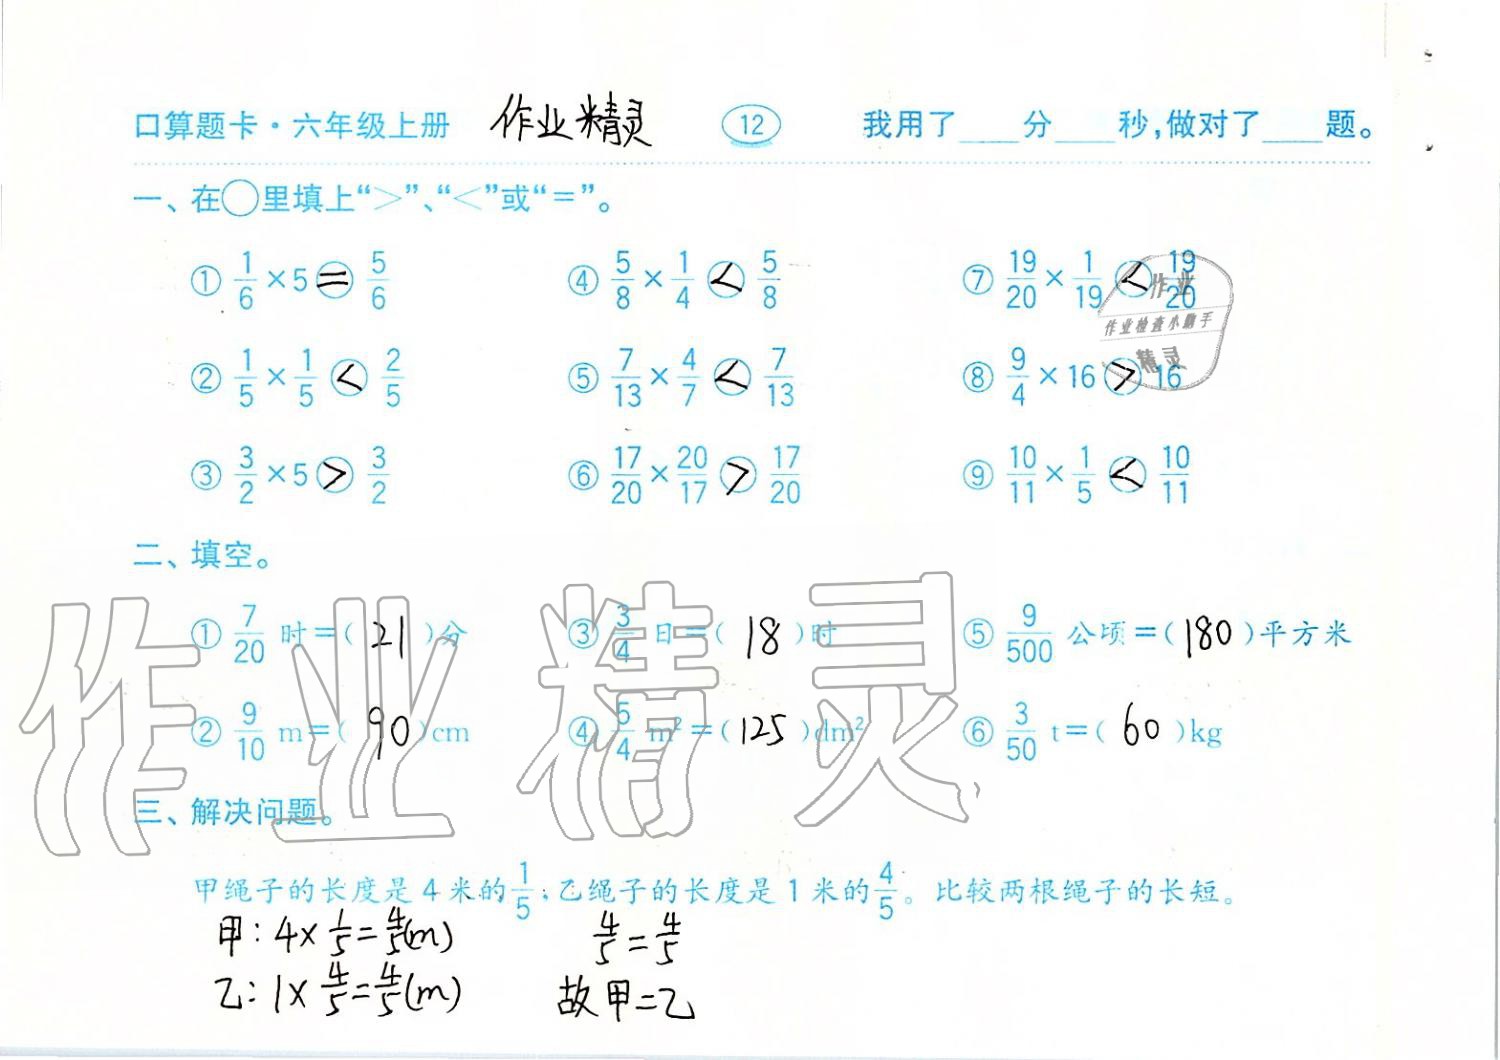 口算题卡·六年级上册 作业精灵 12 我用了____分____秒,做对了____题。
一、在○里填上“>”、“<”或“=”。
① 1/6 × 5 = 5/6 ④ 5/8 × 1/4 < 5/8 ⑦ 19/20 × 1/19 < 19/20
作业
作业检查小助手
精灵
② 1/5 × 1/5 < 2/5 ⑤ 7/13 × 4/7 < 7/13 ⑧ 9/4 × 16 > 16
③ 3/2 × 5 > 3/2 ⑥ 17/20 × 20/17 > 17/20 ⑨ 10/11 × 1/5 < 10/11
二、填空。
① 7/20 时=(21)分 ③ 3/4 日=(18)时 ⑤ 9/500 公顷=(180)平方米
② 9/10 m=(90)cm ④ 5/4 m²=(125)dm² ⑥ 3/50 t=(60)kg
作业精灵
三、解决问题。
甲绳子的长度是4米的1/5,乙绳子的长度是1米的4/5。比较两根绳子的长短。
甲:4×1/5=4/5(m) 4/5=4/5
乙:1×4/5=4/5(m) 故甲=乙